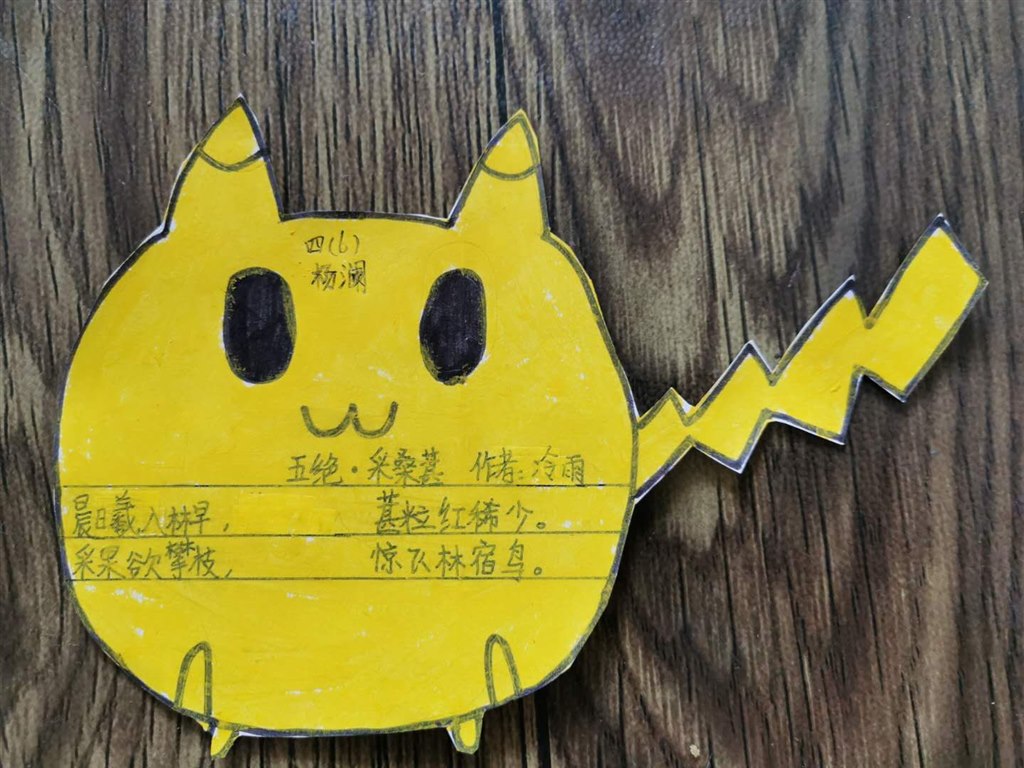 四(6)
杨澜
五绝·采桑葚 作者:冷雨
晨曦入林早, 葚粒红稀少。
采果欲攀枝, 惊飞林宿鸟。